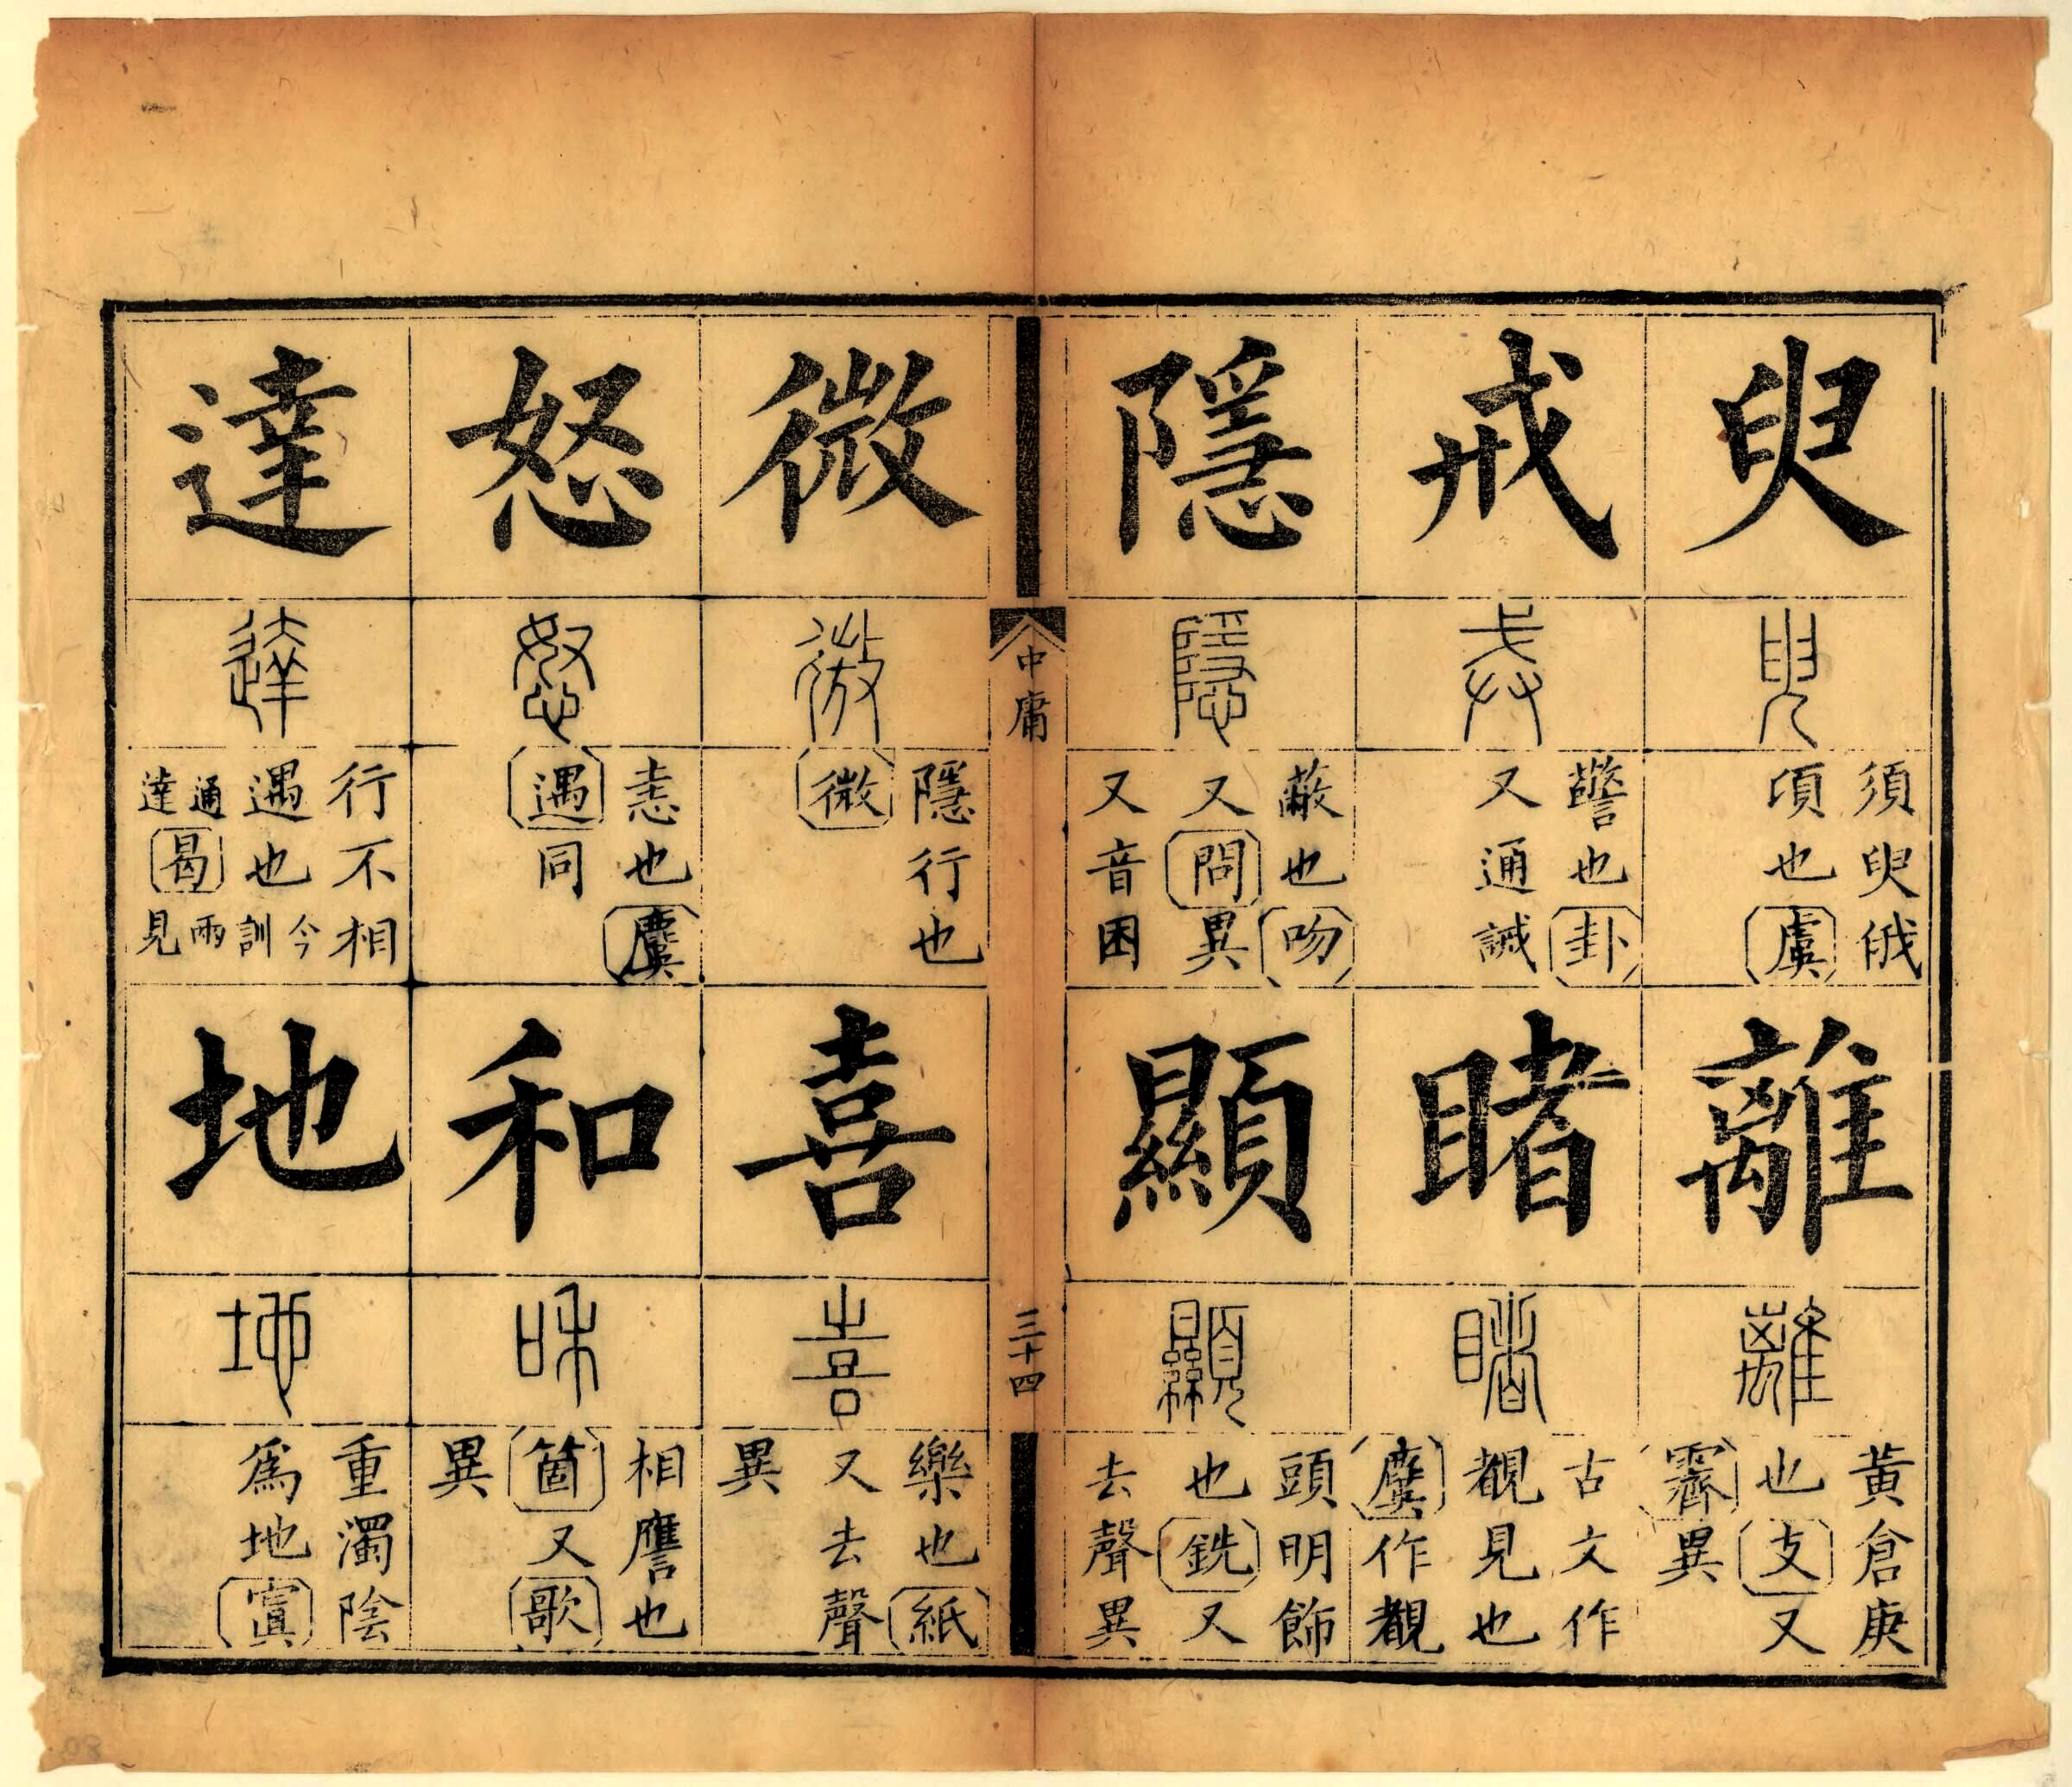 臾
臾
須臾俄
項也虞
離
離
黃倉庚
也支又
霽異
戒
戒
警也卦
又通誡
睹
睹
古文作
覩見也
麌作覩
隱
隱
蔽也吻
又問異
又音困
顯
顯
頭明飾
也銑又
去聲異
中庸
三十四
微
微
隱行也
微
喜
喜
樂也紙
又去聲
異
怒
怒
恚也麌
遇同
和
和
相譍也
箇又歌
異
達
達
行不相
遇也今訓
通達曷兩見
地
地
重濁陰
爲地寘